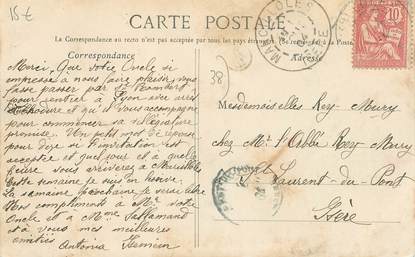 15€
CARTE POSTALE
La Correspondance au recto n'est pas acceptée par tous les pays étrangers. (Se renseigner à la Poste.)
Correspondance
Adresse
38
10
Merci, que votre Oncle si
empressé à nous faire plaisir, vous
fasse passer par St Rambert
pour rentrer à Lyon avec arrêt
et qu'il vous accompagne
pour commencer sa villégiature
promise. Un petit mot de réponse
pour dire si l'invitation est
acceptée et quel jour et à quelle
heure vous arriverez à
Cette semaine je suis en
la semaine prochaine je serai libre
Mes compliments à Mr votre
Oncle et à Mme Lallemand
et à vous mes meilleures
amitiés
Antonia
Mesdemoiselles Rey-Mury
chez Mr l'Abbé Rey-Mury
St Laurent-du-Pont
Isère